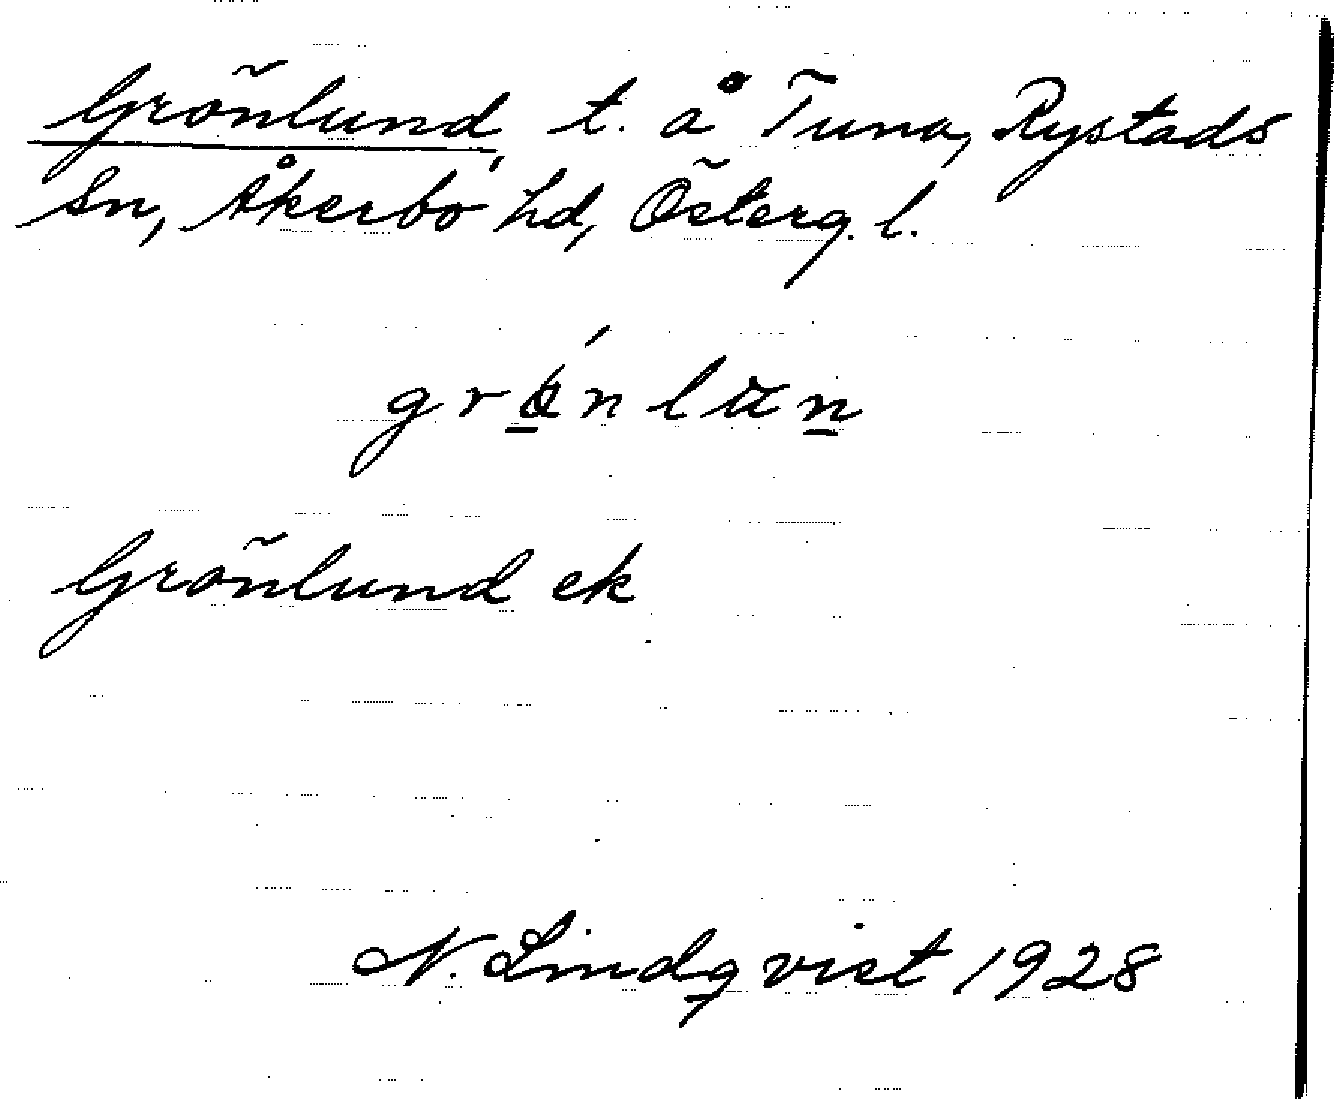 Grönlund, t. å Tuna, Rystads
Sn, Åkerbo hd, Österg. l.
grǿnlun
Grönlund ek
N. Lindqvist 1928